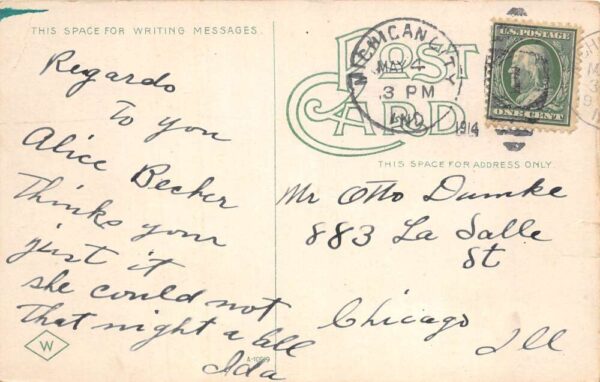 THIS SPACE FOR WRITING MESSAGES.
Regards
To you
Alice Becker
thinks your
just it
she could not
that night a all
Ida
W
A-10519
POST
CARD
MICHIGAN CITY
MAY 4
3 PM
IND.
1914
U.S. POSTAGE
ONE CENT
THIS SPACE FOR ADDRESS ONLY.
Mr Otto Dumke
883 La Salle
St
Chicago
Ill